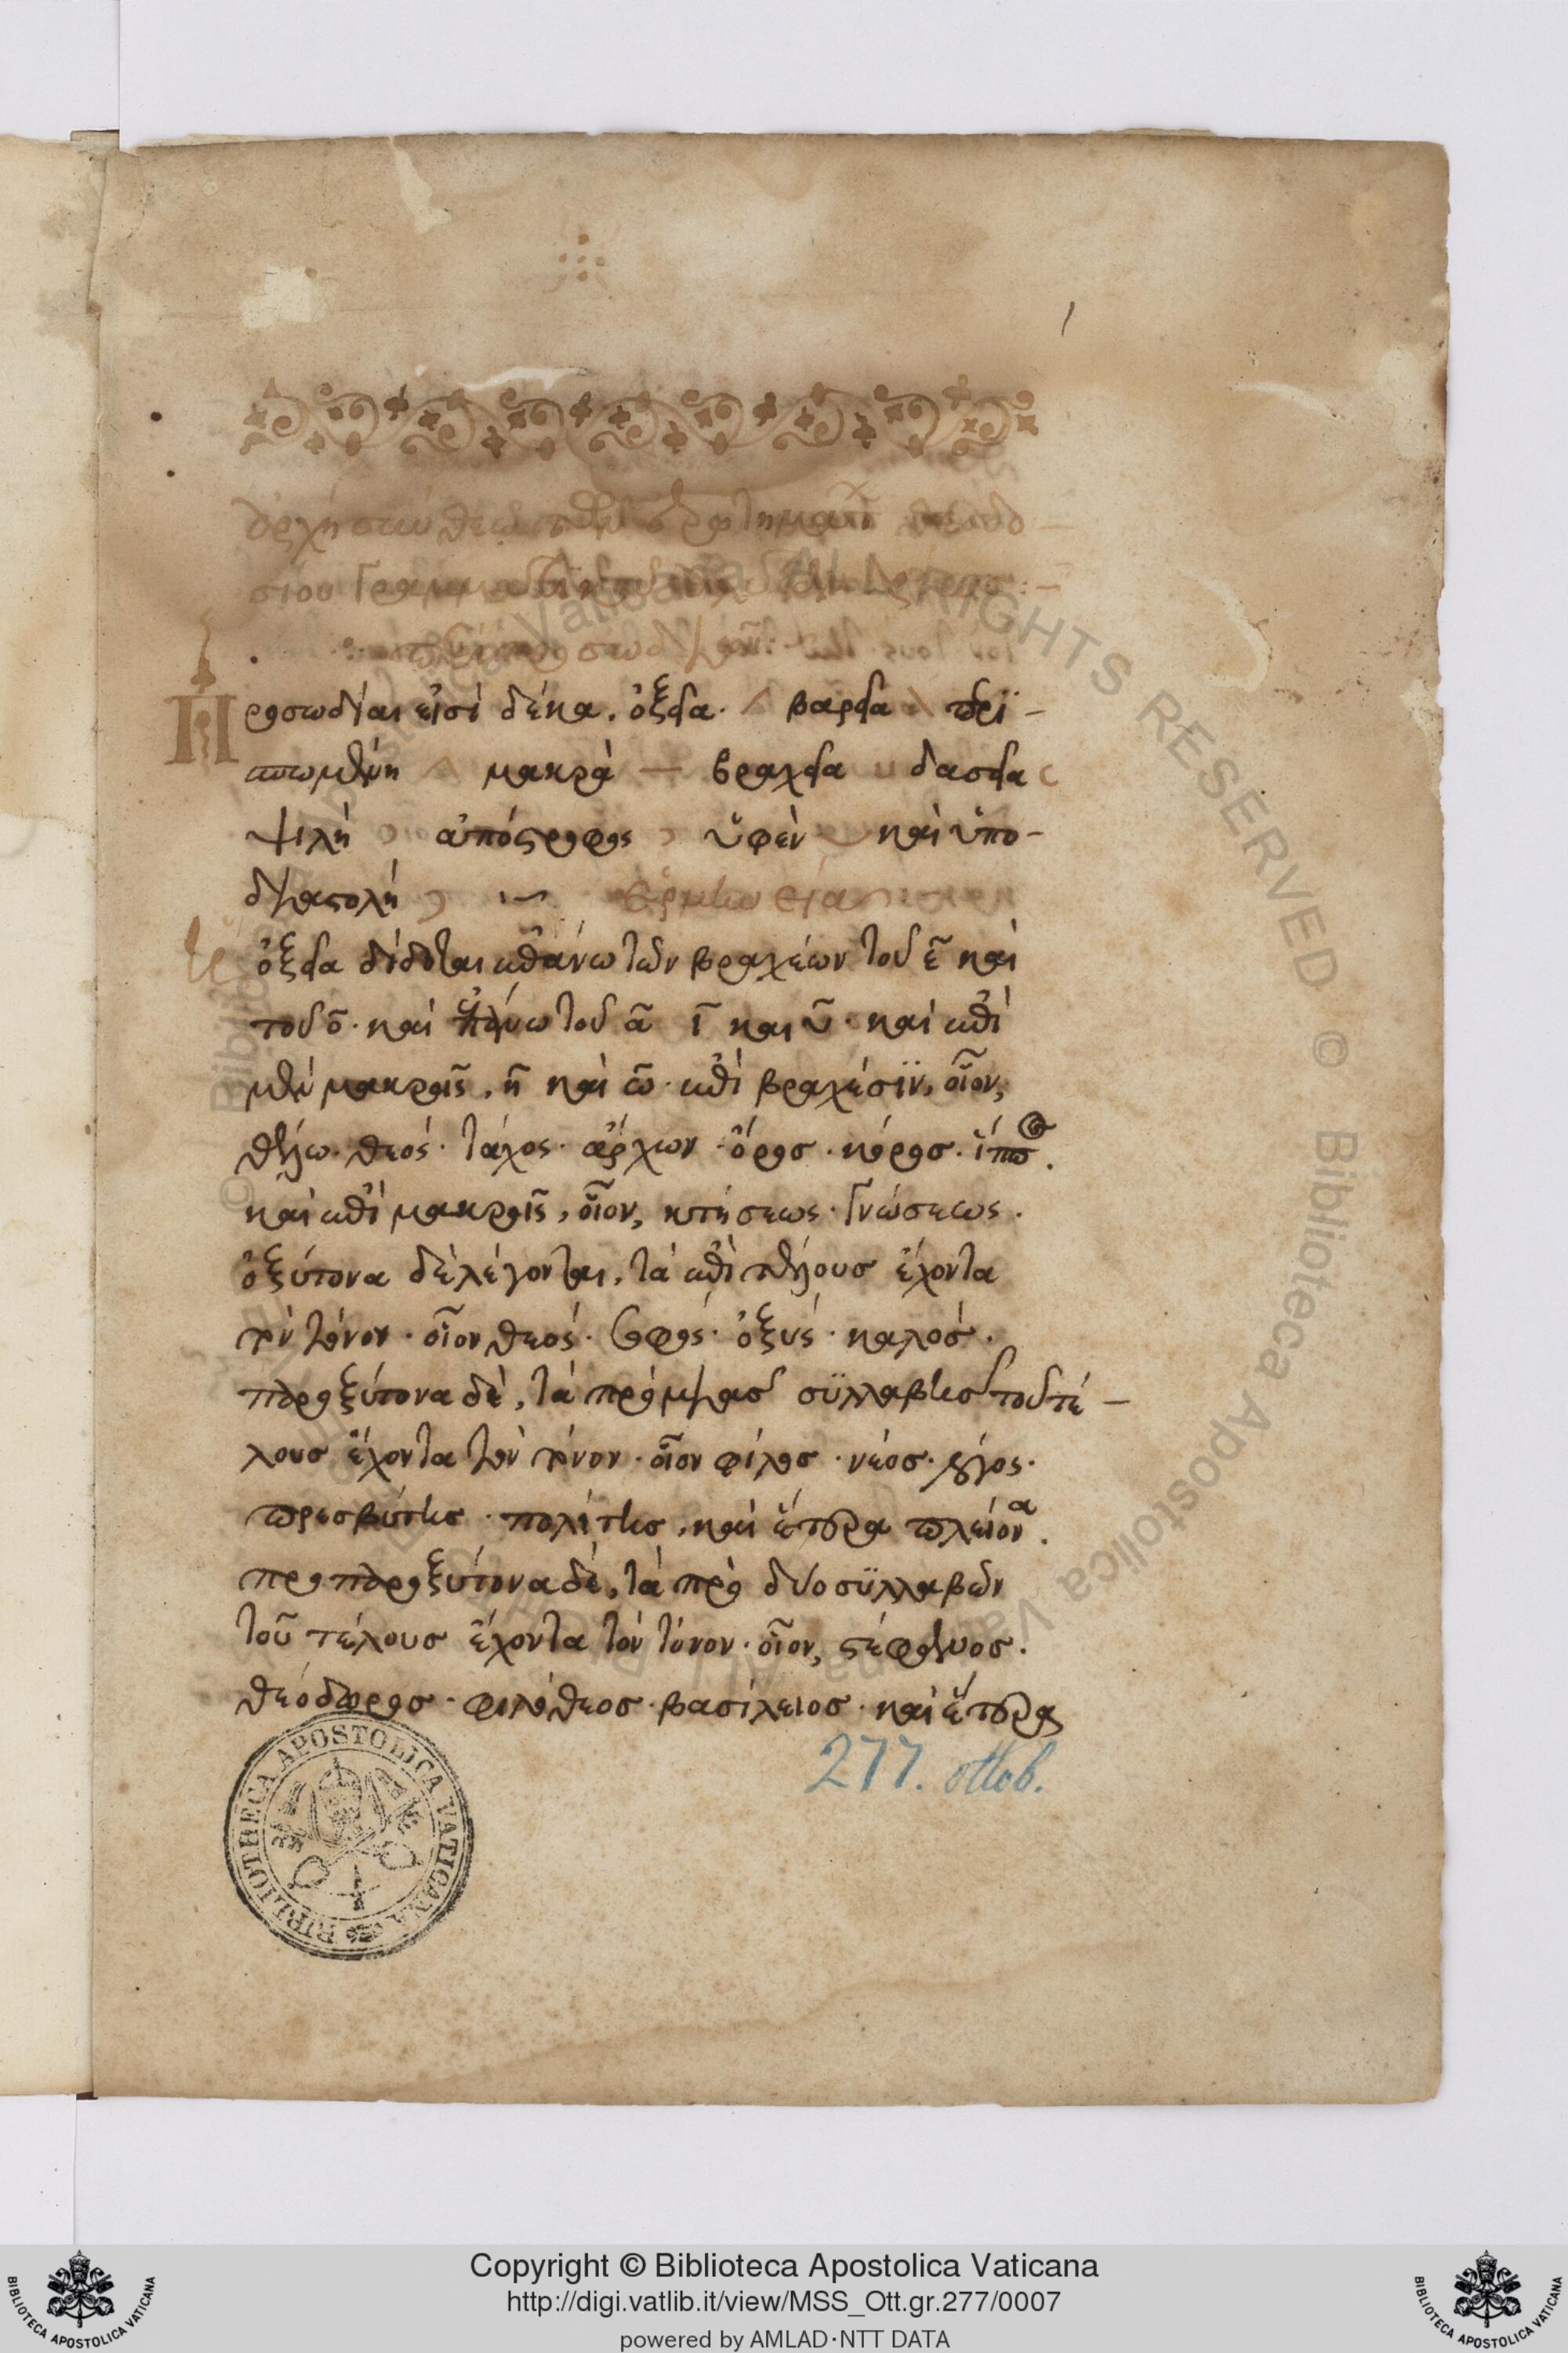 1
ἀρχὴ σὺν θεῷ τῶν ἐρωτημάτων
Προσωδίαι εἰσὶ δέκα. ὀξεῖα · ΄ βαρεῖα ` περι-
σπωμένη ^ μακρὰ — βραχεῖα υ δασεῖα
ψιλὴ ἀπόστροφος ὕφὲν καὶ ὑπο-
διαστολή
ὀξεῖα δίδοται ἐπάνω τῶν βραχέων τοῦ ε̃ καὶ
τοῦ ο̃ · καὶ ἐπάνω τοῦ α̃ ῑ και υ̃ · καὶ ἐπὶ
μὲν μακραῖς, η̃ καὶ ω̃ · ἐπὶ βραχέσϊν, οἷον,
θέλω · θεός · τάχος · ἄρχων · ὄρος · κόρος ·
καὶ ἐπὶ μακραῖς, οἷον, κτήσεως · γνώσεως .
ὀξύτονα δὲ λέγονται, τὰ ἐπὶ τέλους ἔχοντα
τὸν τόνον · οἷον θεός · σοφός · ὀξύς · καλός .
παροξύτονα δὲ, τὰ πρὸ μιᾶς σϋλλαβῆς τοῦ τέ-
λους ἔχοντα τὸν τόνον · οἷον φίλος · νέος · λόγος ·
πρεσβύτης · πολίτης, καὶ ἕτερα πλείονα .
προπαροξύτονα δὲ, τὰ πρὸ δύο σϋλλαβῶν
τοῦ τέλους ἔχοντα τὸν τόνον · οἷον, στέφανος .
θεόδωρος · φιλόθεος · βασίλειος · καὶ ἕτερα
277. ottob.
BIBLIOTHECA APOSTOLICA VATICANA
© Biblioteca Apostolica Vaticana ALL RIGHTS RESERVED
Copyright © Biblioteca Apostolica Vaticana
http://digi.vatlib.it/view/MSS_Ott.gr.277/0007
powered by AMLAD·NTT DATA
BIBLIOTECA APOSTOLICA VATICANA
BIBLIOTECA APOSTOLICA VATICANA